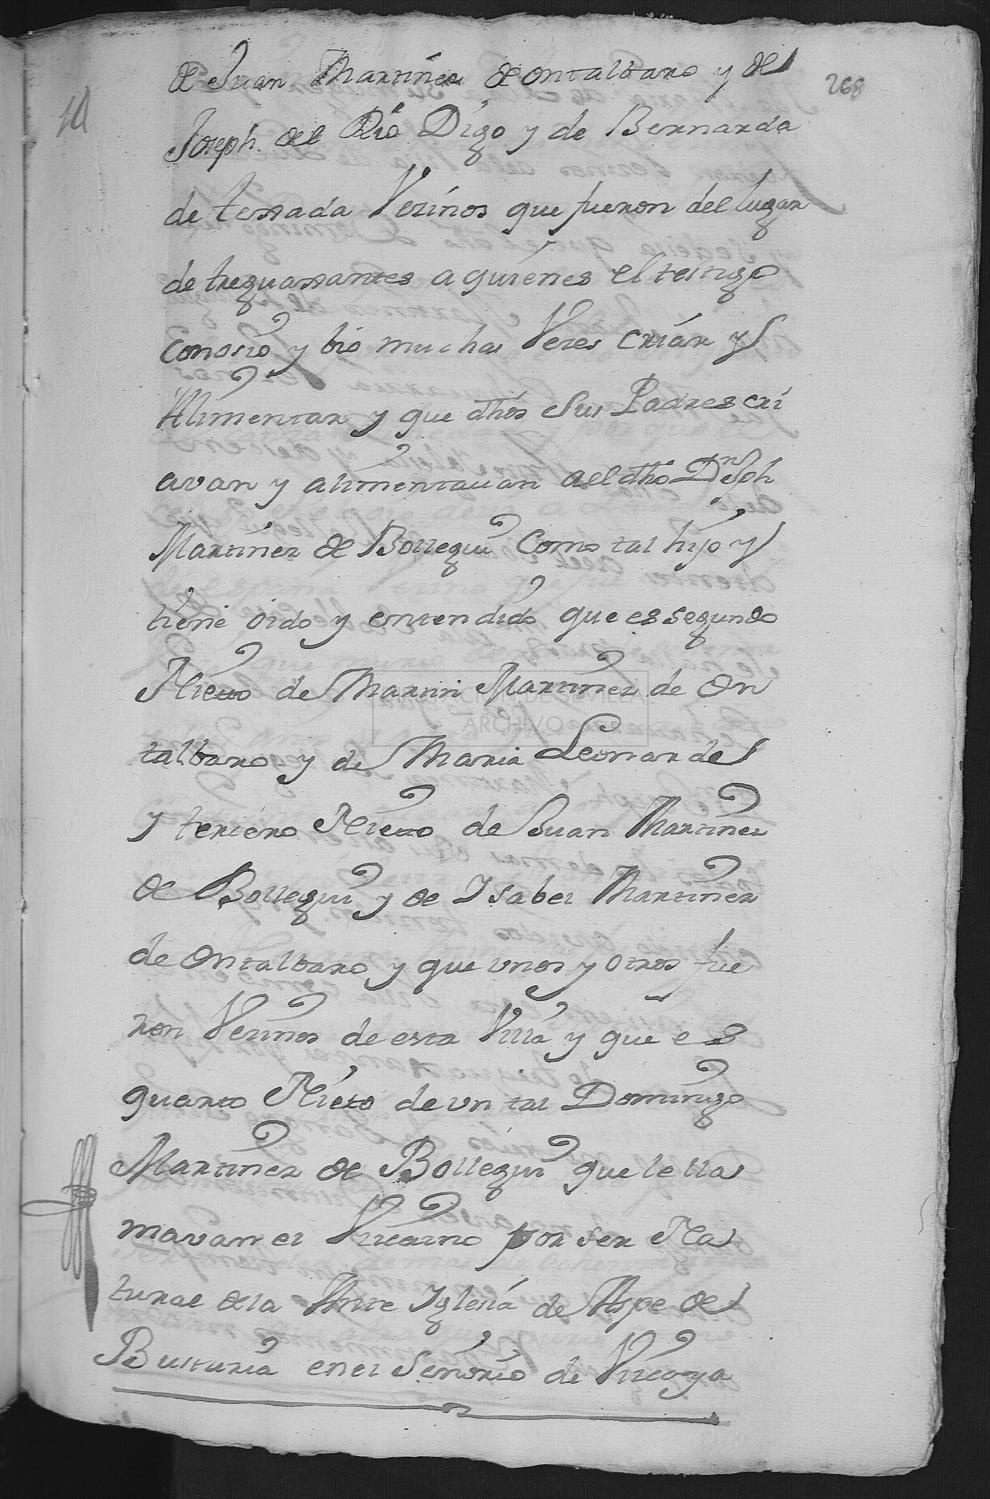 268
de Juan Martinez de ontalbaro y de
Joseph del Rio Digo y de Bernarda
de terrada Vecinos que fueron del lugar
de treguarrantes a quienes el testigo
Conosio y bio muchas Veces criar y
Alimentar y que dhos Sus Padres cri
avan y alimentavan a el dho Dn Jph
Martinez de Bollegui Como tal hijo y
tiene oido y entendido que es segundo
Nieto de Martin Martinez de On
talbaro y de Maria Leonarde
y tercero Nieto de Juan Martinez
de Bollegui y de Ysabel Martinez
de Ontalbaro y que unos y otros fue
ron Vecinos de esta Villa y que es
quarto Nieto de un tal Domingo
Martinez de Bollegui que le lla
mavan el Viscaino por ser Na
tural de la Ante Yglesia de Aspe de
Busturia en el Señorio de Viscaya
ARCHIVO